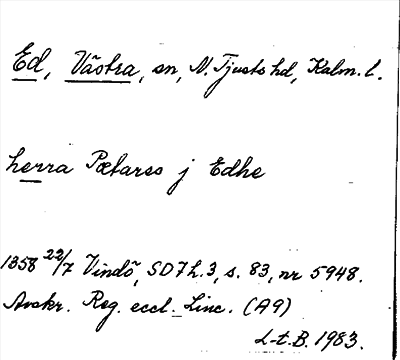 Ed, Västra, sn, N. Tjusts hd, Kalm. l.
herra Pætarss j Edhe
1358 22/7 Vindö, SD7 h. 3, s. 83, nr 5948.
Avskr. Reg. eccl. Linc. (A9)
L-t.B. 1983.